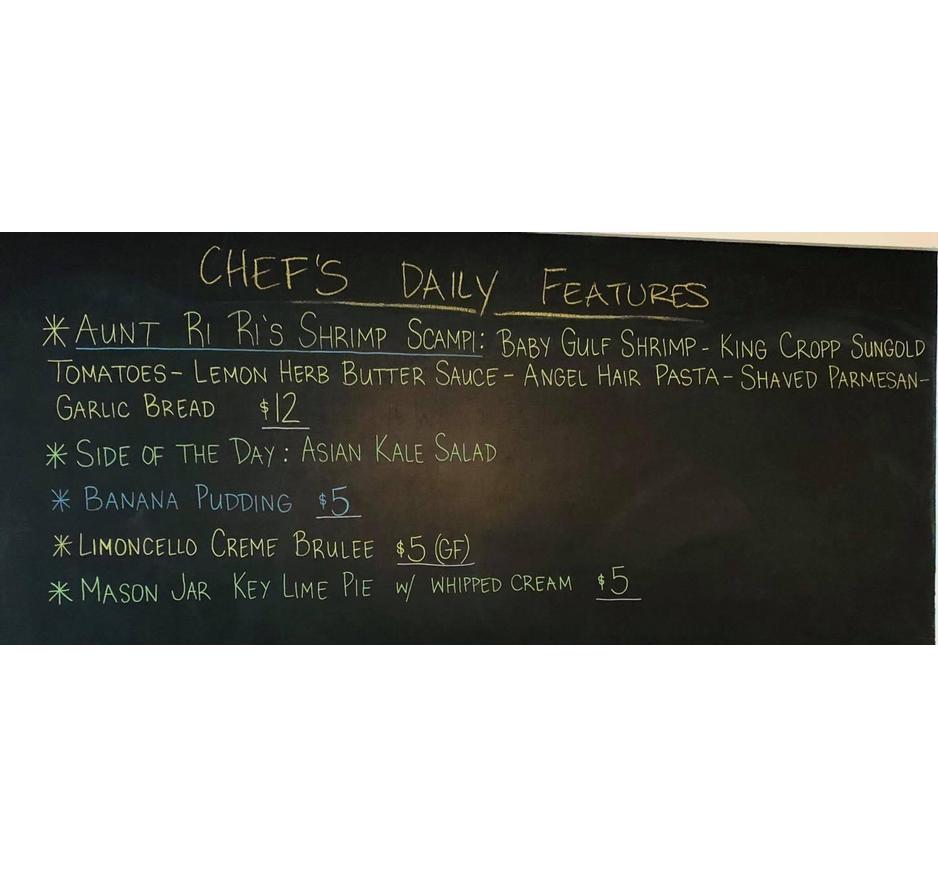 CHEF'S DAILY FEATURES
* AUNT RI RI'S SHRIMP SCAMPI: BABY GULF SHRIMP - KING CROPP SUNGOLD
TOMATOES - LEMON HERB BUTTER SAUCE - ANGEL HAIR PASTA - SHAVED PARMESAN -
GARLIC BREAD $12
* SIDE OF THE DAY: ASIAN KALE SALAD
* BANANA PUDDING $5
* LIMONCELLO CREME BRULEE $5 (GF)
* MASON JAR KEY LIME PIE W/ WHIPPED CREAM $5